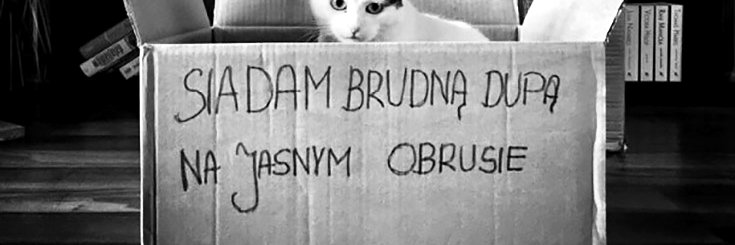 SIADAM BRUDNĄ DUPĄ
NA JASNYM OBRUSIE